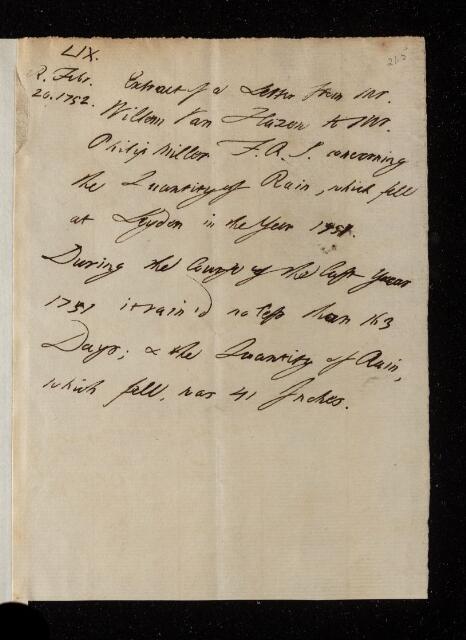 LIX.
215
R. Febr.
20. 1752.
Extract of a Letter from Mr.
Willem Van Hazen to Mr.
Philip Miller F.R.S. concerning
the Quantity of Rain, which fell
at Leyden in the Year 1751.
During the Course of the last Year
1751 it rain'd no less than 163
Days; & the Quantity of Rain,
which fell, was 41 Inches.